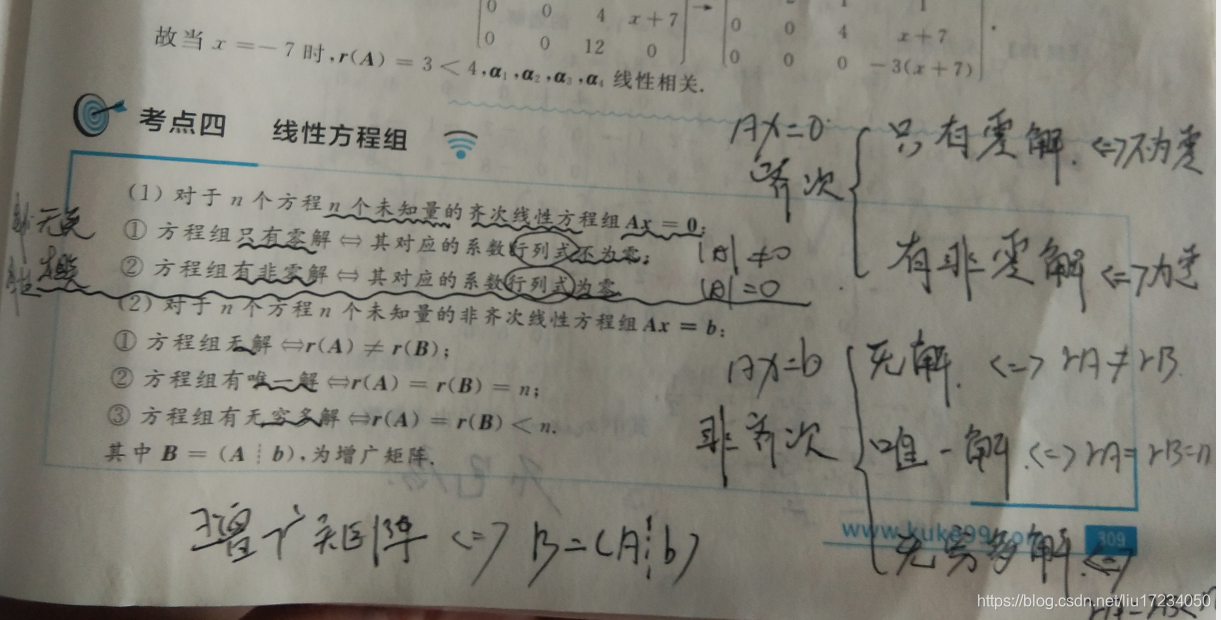 0 0 4 x+7
0 0 12 0
→
0 0 4 x+7
0 0 0 -3(x+7)
故当 x=-7 时,r(A)=3<4,α₁,α₂,α₃,α₄ 线性相关.
考点四 线性方程组
(1)对于 n 个方程 n 个未知量的齐次线性方程组 Ax=0:
① 方程组只有零解⇔其对应的系数行列式不为零;
② 方程组有非零解⇔其对应的系数行列式为零
(2)对于 n 个方程 n 个未知量的非齐次线性方程组 Ax=b:
① 方程组无解⇔r(A)≠r(B);
② 方程组有唯一解⇔r(A)=r(B)=n;
③ 方程组有无穷多解⇔r(A)=r(B)<n.
其中 B=(A⋮b),为增广矩阵.
309
AX=0
齐次
只有零解.<=>不为零
有非零解<=>为零
|A|≠0
|A|=0
无关
AX=b
非齐次
无解.<=>rA≠rB
唯一解.<=>rA=rB=n
无穷多解.<=>
增广矩阵<=>B=(A⋮b)
https://blog.csdn.net/liu17234050